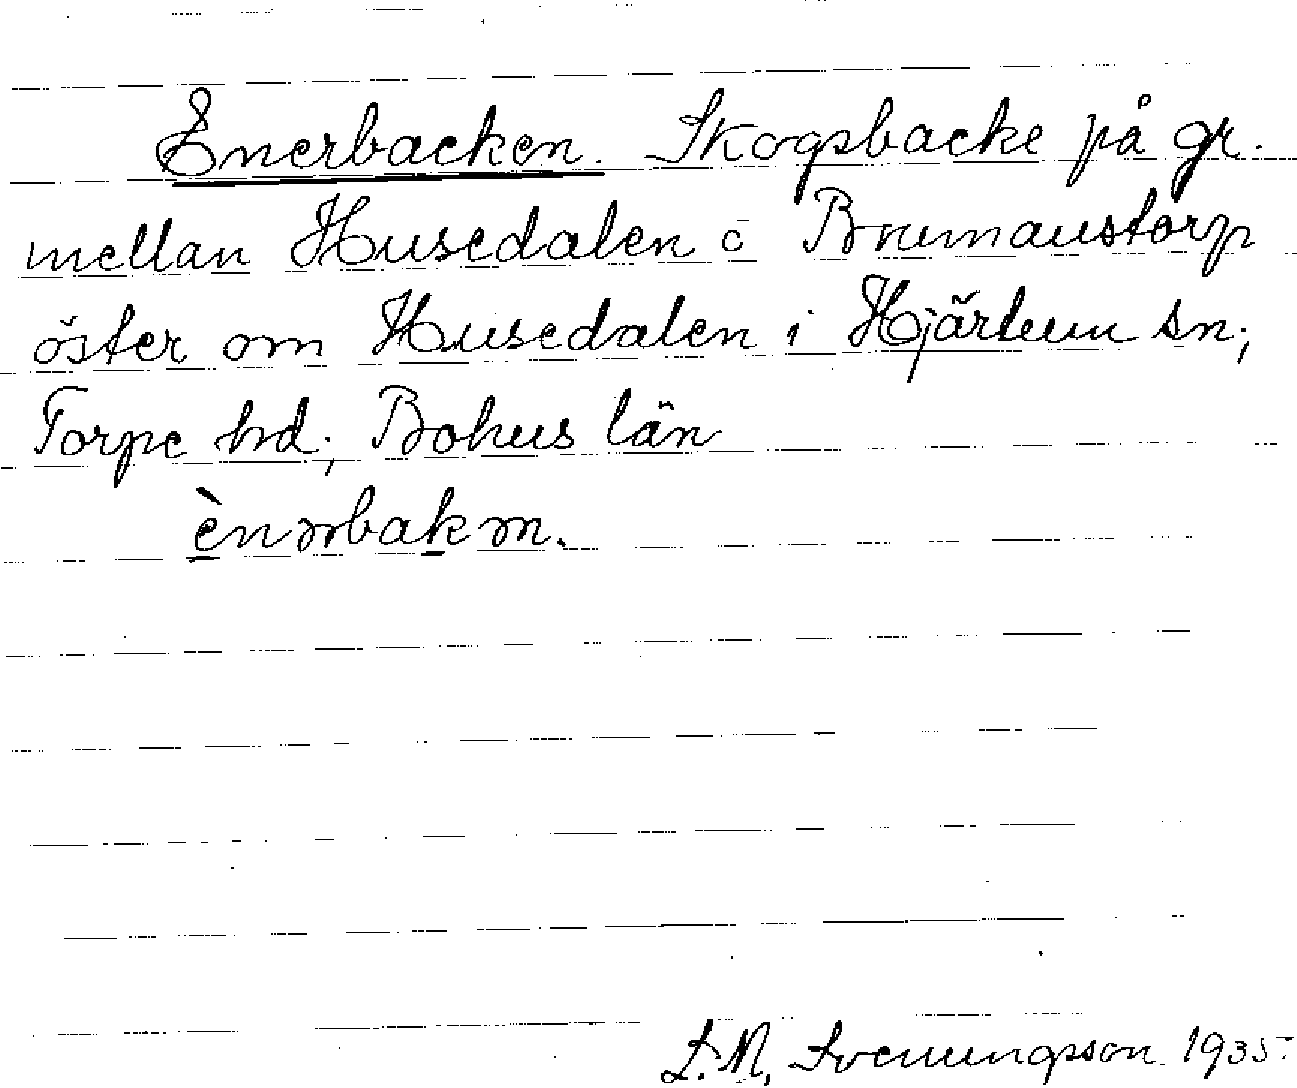 Enerbacken. Skogsbacke på gr.
mellan Husedalen o Brunnanstorp
öster om Husedalen i Hjärtum sn;
Torpe hd; Bohus län
ènərbakən.
S. M. Svenungsson 1935.